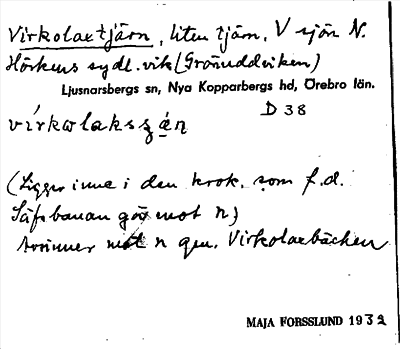 Virkolaxtjärn, liten tjärn, V sjön N.
Hörkens sydl. vik (Gränuddviken)
Ljusnarsbergs sn, Nya Kopparbergs hd, Örebro län.
D 38
(Ligger inne i den krok, som f.d.
Säfsbanan gör mot n)
avrinner mot n gm. Virkolaxbäcken
MAJA FORSSLUND 1932